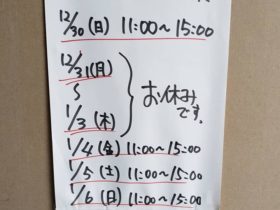 12/30(日) 11:00～15:00
12/31(月)
～
1/3(木)
お休み
です。
1/4(金) 11:00～15:00
1/5(土) 11:00～15:00
1/6(日) 11:00～15:00